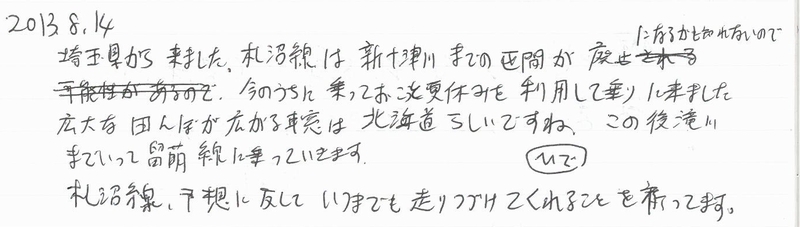 2013.8.14
になるかも知れないので
埼玉県から来ました。札沼線は新十津川までの区間が廃止される
可能性があるので、今のうちに乗っておこうと夏休みを利用して乗りに来ました
広大な田んぼが広がる車窓は北海道らしいですね。この後滝川
までいって留萌線に乗っていきます。
ひで
札沼線、予想に反していつまでも走りつづけてくれることを祈ってます。